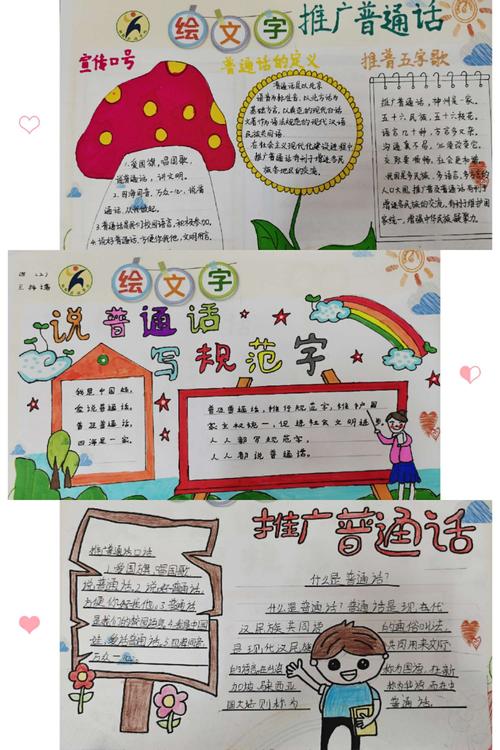 绘文字
推广普通话
宣传口号
1.爱国旗,唱国歌,
说普通话,讲文明。
2.四海同音,万众一心,说普
通话,从我做起。
3.普通话是我们校园语言,积极参加。
4.说好普通话,方便你我他,文明用言
普通话的定义
普通话是以北京
语音为标准音,以北方话为
基础方言,以典范的现代白话
文著作为语法规范的现代汉语
民族共同语。
在社会主义现代化建设进程中
推广普通话有利于增进各民
族各地区的交流。
推普五字歌
推广普通话,神州是一家。
五十六民族,五十六枝花。
语言几十种,方言多又杂。
沟通真不易,
交际要顺畅,社会更和谐。
我国是多民族,多语言,多方言的
人口大国,推广普及普通话有利于
增进各民族的交流,有利于维护国
家统一,增强中华民族凝聚力。
绘文字
说普通话
写规范字
我是中国娃,
爱说普通话,
普及普通话,
四海是一家。
普及普通话,推行规范字,维护国
家主权统一,促进社会文明进步,
人人都写规范字,
人人都说普通话。
推广普通话
推广普通话口号
1.爱国旗,唱国歌
说普通话,2.说好普通话,
方便你我他,3.普通话
是我们的校园语言
娃,爱说普通话,
万众一心。
什么是普通话?
什么是普通话?普通话是现在代
汉民族共同语 的通俗叫法,
是现代汉民族 共同用来交际
的语言 称为国语,在新
加坡、马来西亚 称为华语而在中
国大陆则称为 普通话。